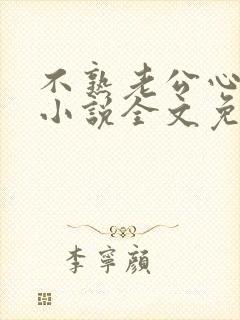 不熟老公心
小说全文免
李寧顏